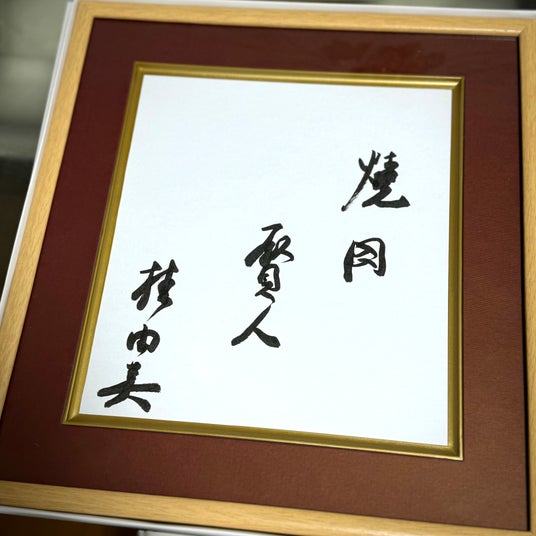 燒肉
賢人
桂由美